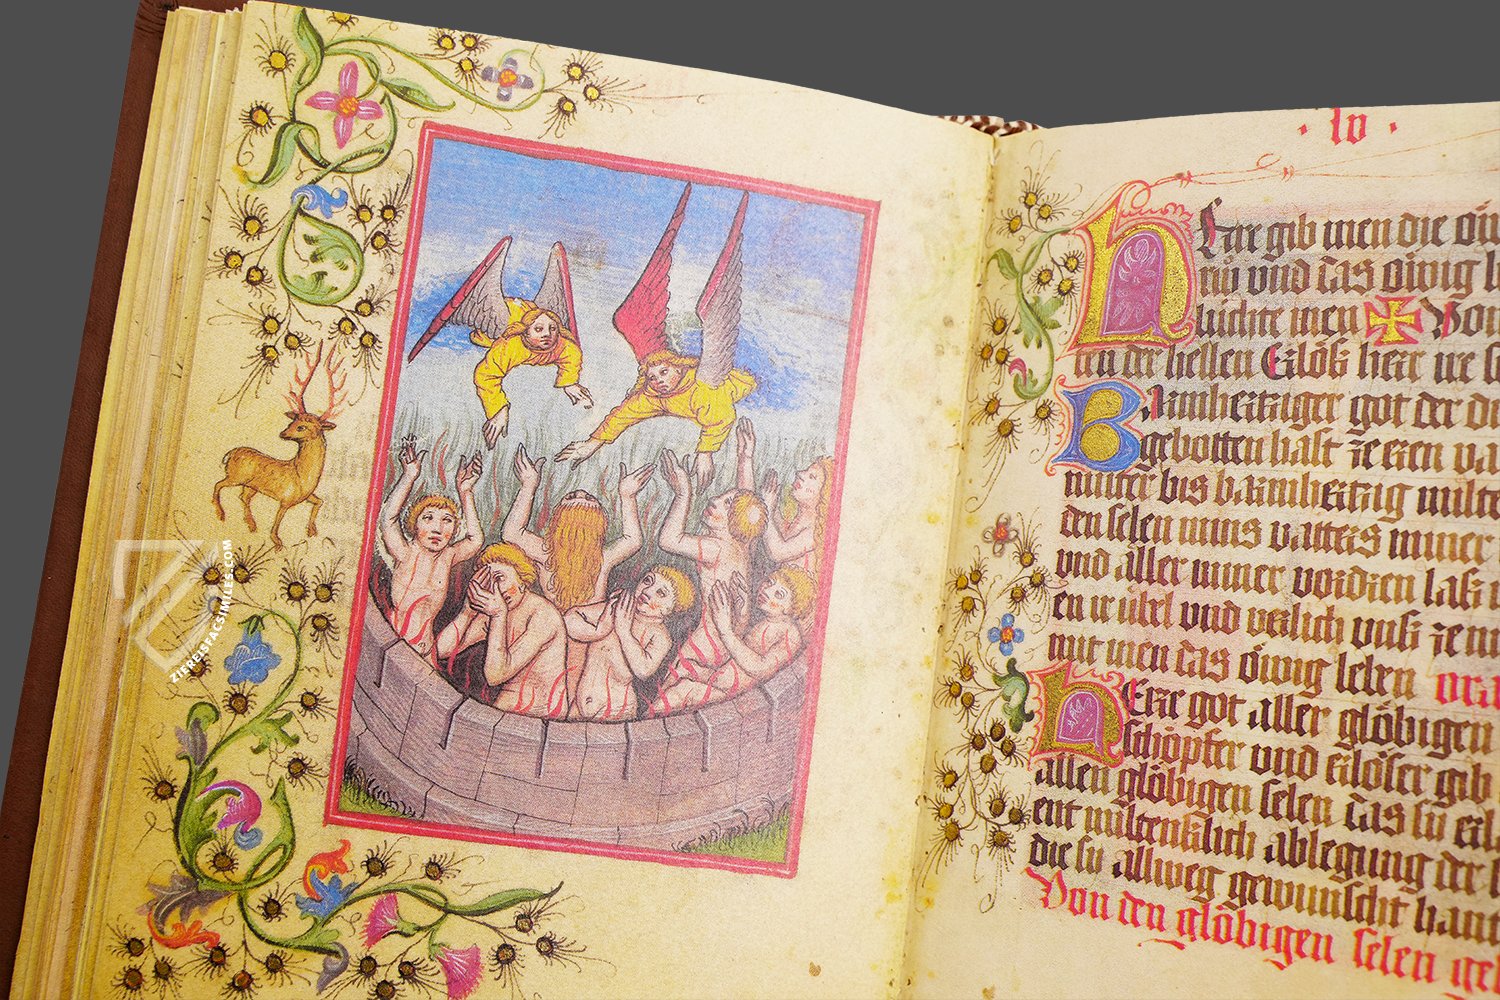 · lv ·
Herre gib inen die öw
rüw vnd das öwig l
lüchte inen ✠ Von
ten der hellen Erlös herr ire se
Barmhertziger got der du
gebotten hast ze eren va
mutter bis barmhertzig milten
den selen mins vatters miner
vnd aller miner vordren las
en ir übel vnd verlich vns ze
mit inen das öwig leben ora
Herre got aller glöbigen
schöpfer vnd erlöser gib
allen glöbigen selen das sü
ent miltenklich ablegung der
die sü allweg gewünscht hant
Von den glöbigen selen geb
ZIEREISFACSIMILES.COM